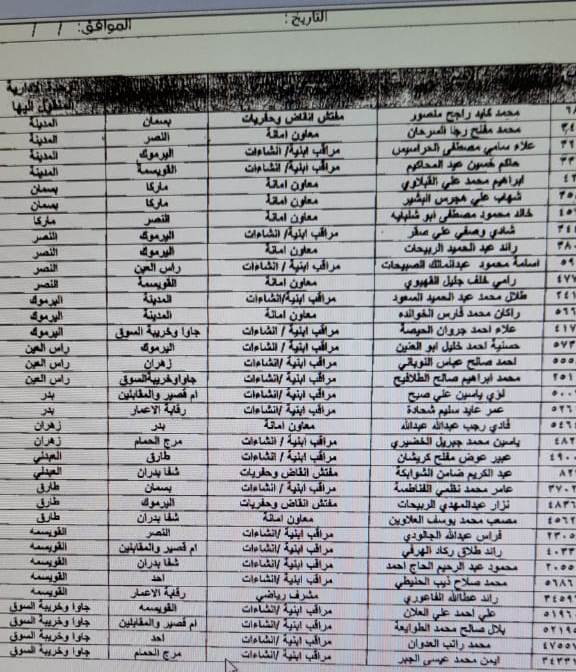 التاريخ: الموافق: / /
المنقول اليها
محمد عايد راجح منصور مفتش انقاض وحفريات بسمان المدينة
محمد مفلح رجا السرحان معاون امانة النصر المدينة
علاء سامي مصطفى الحراسيس مراقب ابنية/ انشاءات اليرموك المدينة
حاكم حسين عيد المحاكيم مراقب ابنية/ انشاءات القويسمة المدينة
ابراهيم محمد علي القبلاوي معاون امانة ماركا بسمان
شهاب علي هجرس البشير معاون امانة ماركا بسمان
خالد محمود مصطفى ابو شلبايه معاون امانة النصر ماركا
شادي وصفي علي صقر مراقب ابنية / انشاءات اليرموك النصر
رائد عبد الحميد الربيحات معاون امانة اليرموك النصر
اسامة محمود عبدالمالك الصبيحات مراقب ابنية / انشاءات راس العين النصر
رامي خلف جليل القهيوي معاون امانة القويسمة النصر
طلال محمد عبد الحميد السعود مراقب ابنية/انشاءات المدينة اليرموك
راكان محمد فارس الخوالده معاون امانة المدينة اليرموك
علاء احمد جروان الحيصة مراقب ابنية / انشاءات جاوا وخريبة السوق اليرموك
حسنية احمد خليل ابو العنين مراقب ابنية /انشاءات اليرموك راس العين
احمد صالح عباس النوباني مراقب ابنية /انشاءات زهران راس العين
محمد ابراهيم صالح الطلافيح مراقب ابنية /انشاءات جاواوخريبةالسوق راس العين
لؤي ياسين علي صبح مراقب ابنية / انشاءات ام قصير والمقابلين بدر
عمر عايد سليم شحادة مراقب ابنية /انشاءات رقابة الاعمار بدر
فادي رجب عبدالله عبدالله معاون امانة بدر زهران
ياسين محمد جبريل الخضيري مراقب ابنية / انشاءات مرج الحمام زهران
عبير عوض مفلح كريشان مراقب ابنية / انشاءات طارق العبدلي
عبد الكريم ضامن الشوابكة مفتش انقاض وحفريات شفا بدران العبدلي
عامر محمد نظمي الفناطسة مراقب ابنية / انشاءات بسمان طارق
نزار عبدالمهدي الربيحات مفتش انقاض وحفريات اليرموك طارق
مصعب محمد يوسف العلاوين معاون امانة شفا بدران طارق
فراس عبدالله الجالودي مراقب ابنية /انشاءات النصر القويسمه
رائد طلاق ركاد الهرفي مراقب ابنية /انشاءات ام قصير والمقابلين القويسمه
محمود عبد الرحيم الحاج احمد مراقب ابنية /انشاءات شفا بدران القويسمه
محمد صلاح ذيب الحنيطي مراقب ابنية /انشاءات احد القويسمه
رائد عطاالله الفاعوري مشرف رياضي رقابة الاعمار القويسمه
علي احمد علي العلان مراقب ابنية /انشاءات القويسمه جاوا وخريبة السوق
بلال صالح محمد الطوايعة مراقب ابنية /انشاءات ام قصير والمقابلين جاوا وخريبة السوق
محمد راتب العدوان مراقب ابنية /انشاءات احد جاوا وخريبة السوق
ايمن محمد عيسى الجبر مراقب ابنية /انشاءات مرج الحمام جاوا وخريبة السوق